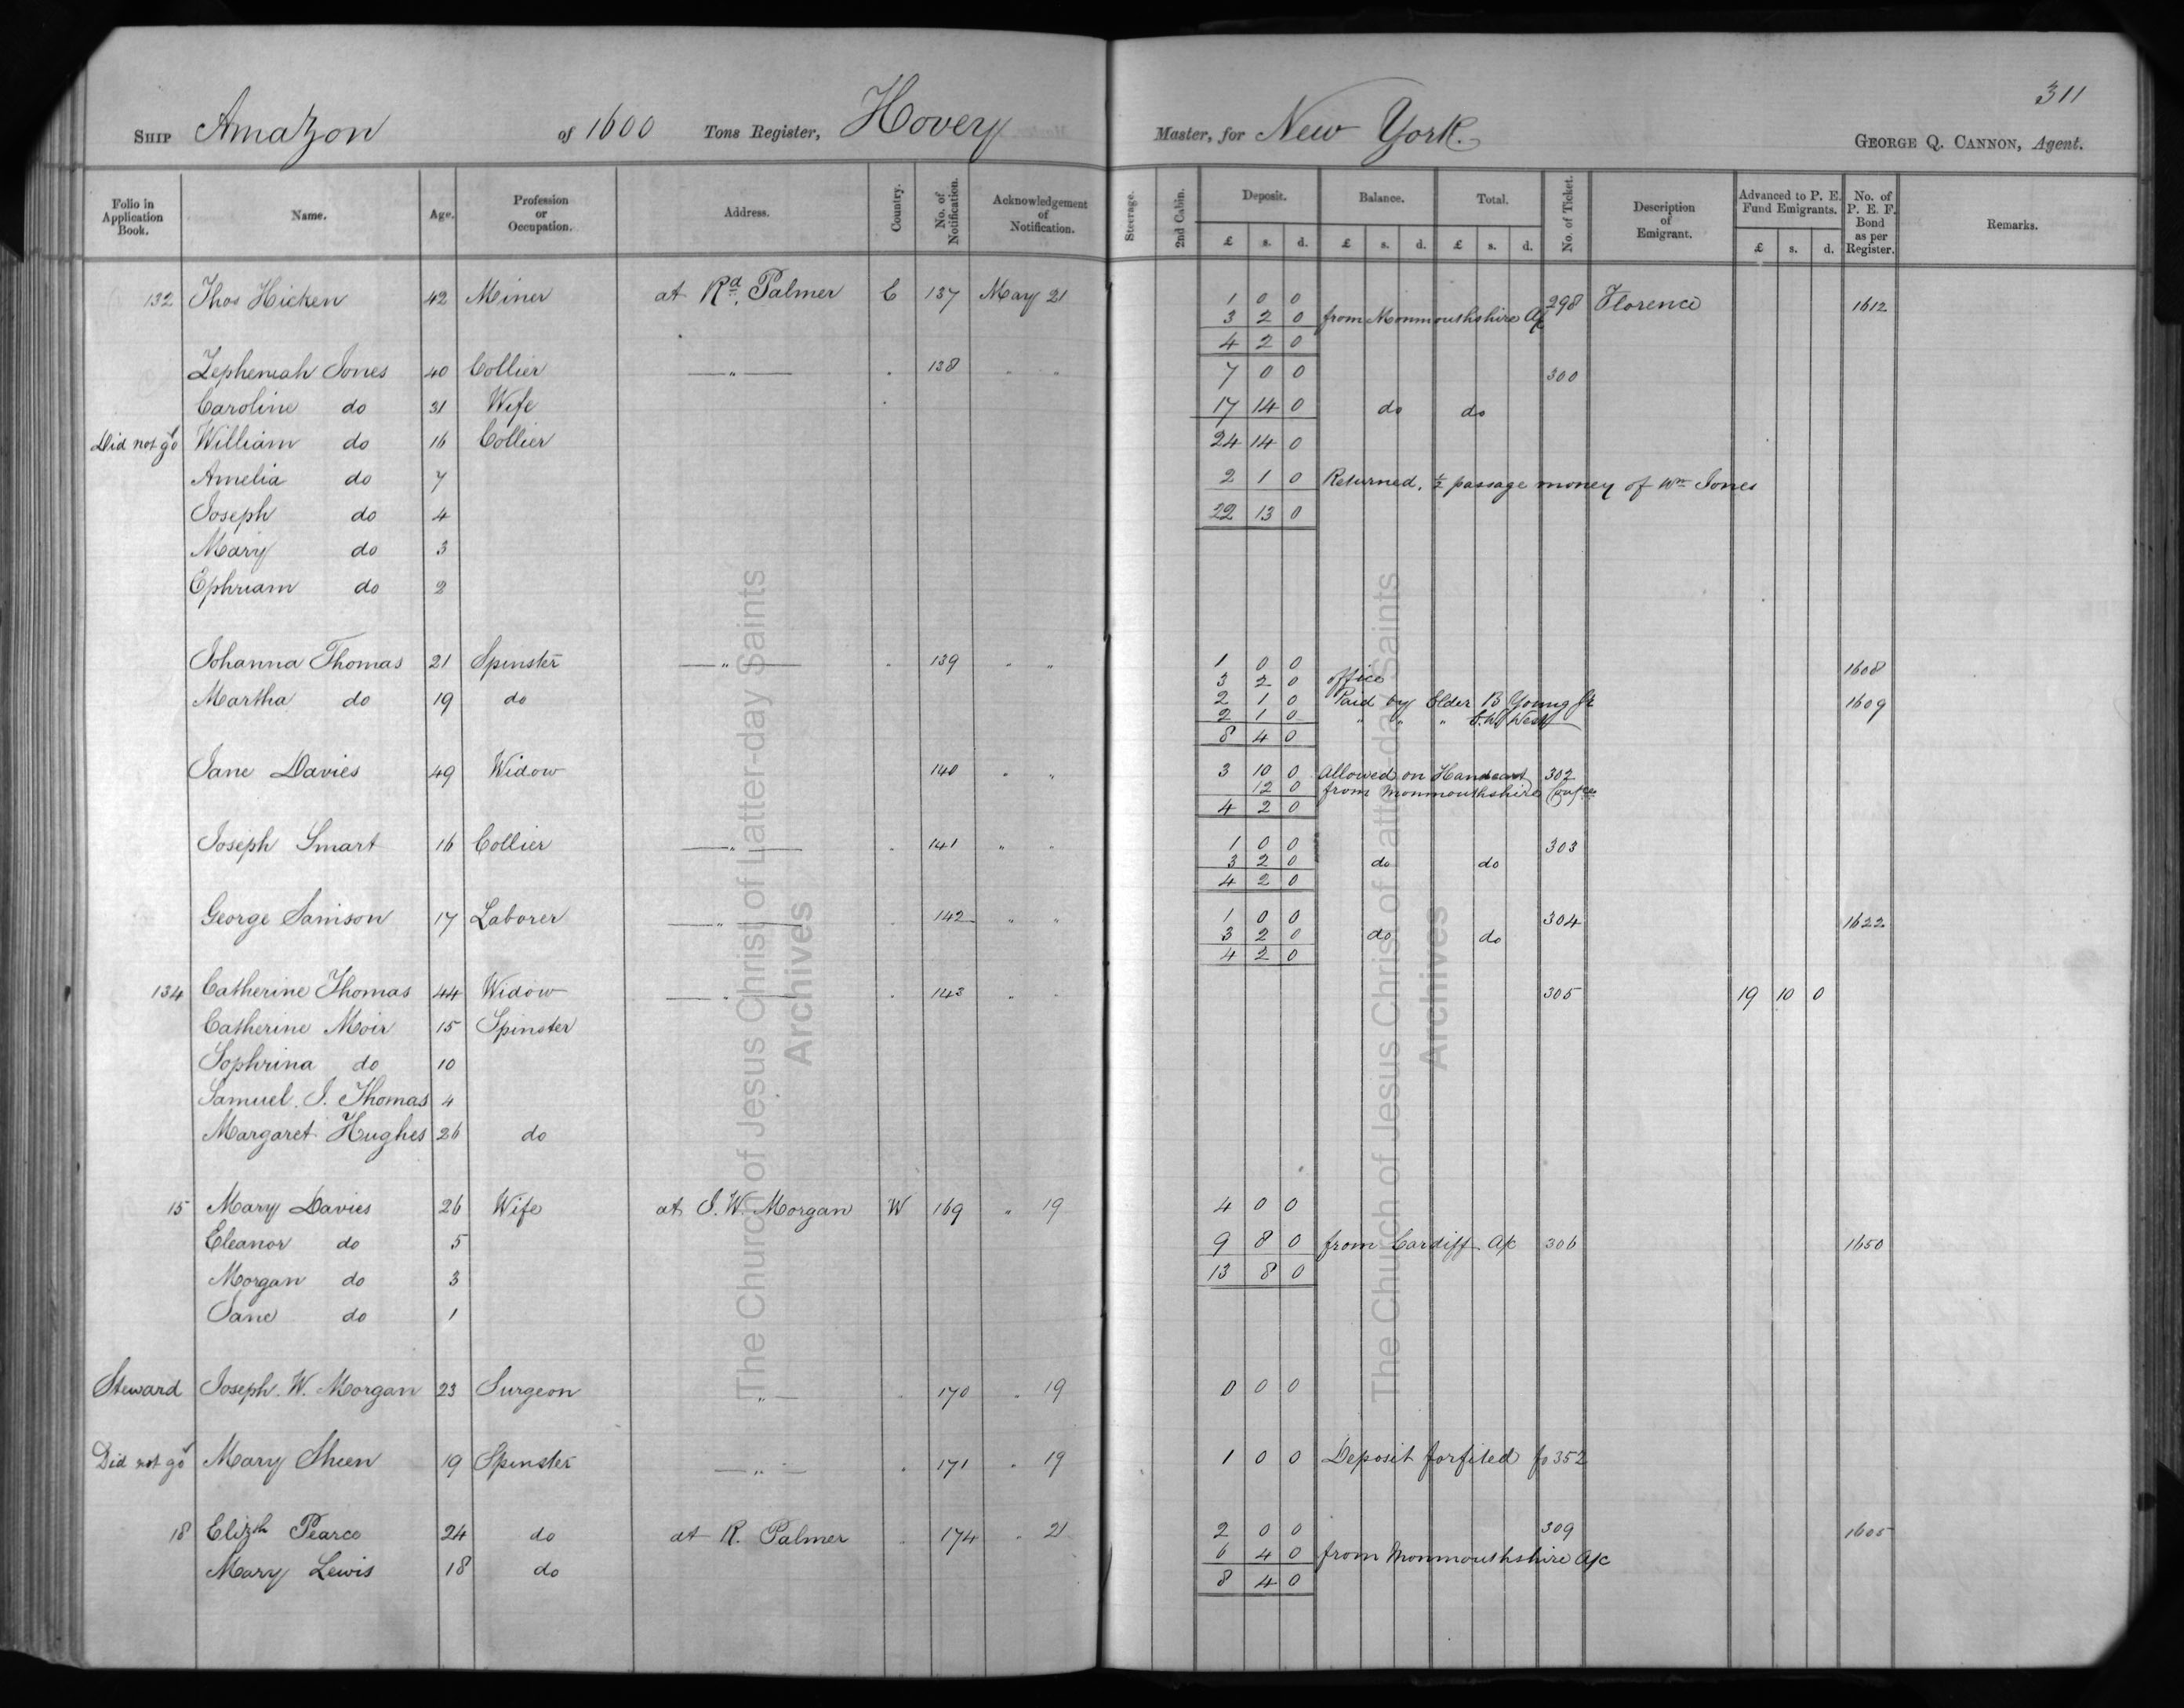 311
SHIP Amazon of 1600 Tons Register, Hovey Master, for New York. GEORGE Q. CANNON, Agent.
Folio in Application Book. Name. Age. Profession or Occupation. Address. Country. No. of Notification. Acknowledgement of Notification. Steerage. 2nd Cabin. Deposit. Balance. Total. No. of Ticket. Description of Emigrant. Advanced to P. E. Fund Emigrants. No. of P. E. F. Bond as per Register. Remarks.
£ s. d. £ s. d. £ s. d. £ s. d.
132 Thos Hicken 42 Meiner at Rd. Palmer E 137 May 21 1 0 0 298 Florence 1612
3 2 0 from Monmouthshire A/c
4 2 0
Zepheniah Jones 40 Collier —"— 138 7 0 0 300
Caroline do 31 Wife 17 14 0 do do
Did not go William do 16 Collier 24 14 0
Amelia do 7 2 1 0 Returned. ½ passage money of Wm Jones
Joseph do 4 22 13 0
Mary do 3
Ephriam do 2
Johanna Thomas 21 Spinster —"— 139 " " 1 0 0 1608
3 2 0 office
Martha do 19 do 2 1 0 Paid by Elder B Young Jr 1609
2 1 0 " " " C.W. West
8 4 0
Jane Davies 49 Widow 140 " " 3 10 0 Allowed on Handcart 302
12 0 from Monmouthshire Confce
4 2 0
Joseph Smart 16 Collier —"— 141 " " 1 0 0 303
3 2 0 do do
4 2 0
George Samson 17 Laborer —"— 142 " " 1 0 0 304 1622
3 2 0 do do
4 2 0
134 Catherine Thomas 44 Widow —"— 143 " " 305 19 10 0
Catherine Moir 15 Spinster
Sophrina do 10
Samuel. J. Thomas 4
Margaret Hughes 26 do
15 Mary Davies 26 Wife at J. W. Morgan W 169 " 19 4 0 0
Eleanor do 5 9 8 0 from Cardiff A/c 306 1650
Morgan do 3 13 8 0
Jane do 1
Steward Joseph. W. Morgan 23 Surgeon —"— 170 " 19 0 0 0
Did not go Mary Sheen 19 Spinster —"— 171 " 19 1 0 0 Deposit forfited fo 352
18 Elizth Pearce 24 do at R. Palmer 174 " 21 2 0 0 309 1605
6 4 0 from Monmouthshire A/c
Mary Lewis 18 do 8 4 0
The Church of Jesus Christ of Latter-day Saints
Archives
The Church of Jesus Christ of Latter-day Saints
Archives